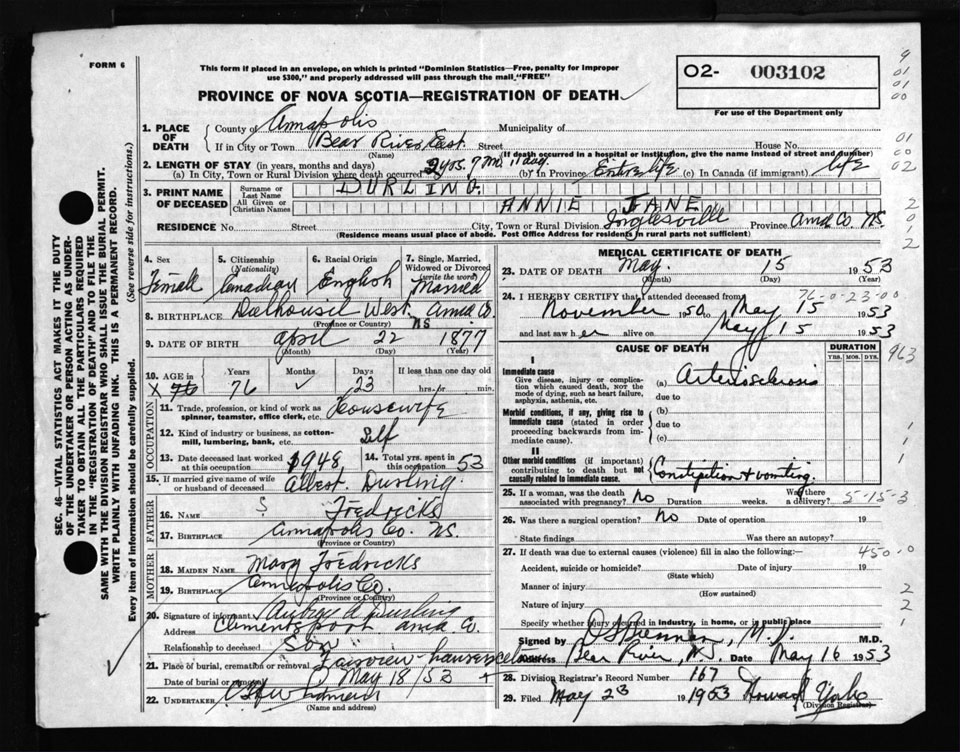 FORM 6
This form if placed in an envelope, on which is printed "Dominion Statistics—Free, penalty for improper
use $300," and properly addressed will pass through the mail "FREE"
O2- 003102
For use of the Department only
PROVINCE OF NOVA SCOTIA—REGISTRATION OF DEATH
1. PLACE OF DEATH
County of Annapolis Municipality of
If in City or Town Bear River East Street House No.
(Name) (If death occurred in a hospital or institution, give the name instead of street and number)
2. LENGTH OF STAY (in years, months and days)
(a) In City, Town or Rural Division where death occurred 2 yrs. 7 Mo. 11 day. (b) In Province Entire life (c) In Canada (if immigrant) life
3. PRINT NAME OF DECEASED
Surname or Last Name DURLING
All Given or Christian Names ANNIE JANE
RESIDENCE No. Street City, Town or Rural Division Inglesville Province Anna Co. NS.
(Residence means usual place of abode. Post Office Address for residents in rural parts not sufficient)
4. Sex Female
5. Citizenship (Nationality) Canadian
6. Racial Origin English
7. Single, Married, Widowed or Divorced (write the word) Married
8. BIRTHPLACE Dalhousie West. Anna Co. NS
(Province or Country)
9. DATE OF BIRTH April 22 1877
(Month) (Day) (Year)
10. AGE in Years Months Days If less than one day old
X 76 76 ✓ 23 hrs. or min.
OCCUPATION
11. Trade, profession, or kind of work as spinner, teamster, office clerk, etc. Housewife
12. Kind of industry or business, as cotton-mill, lumbering, bank, etc. Self
13. Date deceased last worked at this occupation 1948
14. Total yrs. spent in this occupation 53
15. If married give name of wife or husband of deceased Albert Durling.
FATHER
16. Name ? Fredricks
17. BIRTHPLACE Annapolis Co. NS.
(Province or Country)
MOTHER
18. MAIDEN NAME Mary Fredricks
19. BIRTHPLACE Annapolis Co
(Province or Country)
20. Signature of informant A Durling
Address Clementsport Anna Co.
Relationship to deceased Son
21. Place of burial, cremation or removal Fairview
Date of burial or removal May 18/53
22. UNDERTAKER
(Name and address)
MEDICAL CERTIFICATE OF DEATH
23. DATE OF DEATH May. 15 1953
(Month) (Day) (Year)
76-0-23-00
24. I HEREBY CERTIFY that I attended deceased from
November 1950 to May 15 1953
and last saw h er alive on May 15 1953
CAUSE OF DEATH
DURATION
YRS. MOS. DYS.
963
I
Immediate cause
Give disease, injury or complication which caused death, not the mode of dying, such as heart failure, asphyxia, asthenia, etc.
(a) Arteriosclerosis
due to
Morbid conditions, if any, giving rise to immediate cause (stated in order proceeding backwards from immediate cause).
(b)
due to
(c)
II
Other morbid conditions (if important) contributing to death but not causally related to immediate cause.
Constipation + vomiting.
25. If a woman, was the death associated with pregnancy? No Duration weeks. Was there a delivery? 5-15-3
26. Was there a surgical operation? No Date of operation 19
State findings Was there an autopsy?
27. If death was due to external causes (violence) fill in also the following:— 450-0
Accident, suicide or homicide? Date 19
(State which)
Manner of injury
(How sustained)
Nature of injury
Specify whether injury occurred in industry, in home, or in public place
Signed by Brennan, M.D. M.D.
Address Bear River, N.S. Date May 16 1953
28. Division Registrar's Record Number 167
29. Filed May 23 19 1953 Howard
(Division Registrar)
SEC. 46—VITAL STATISTICS ACT MAKES IT THE DUTY
OF THE UNDERTAKER OR PERSON ACTING AS UNDER-
TAKER TO OBTAIN ALL THE PARTICULARS REQUIRED
IN THE "REGISTRATION OF DEATH" AND TO FILE THE
SAME WITH THE DIVISION REGISTRAR WHO SHALL ISSUE THE BURIAL PERMIT.
WRITE PLAINLY WITH UNFADING INK. THIS IS A PERMANENT RECORD.
Every item of information should be carefully supplied. (See reverse side for instructions.)
9
01
01
00
01
00
02
2
0
1
2
1
1
2
2
1